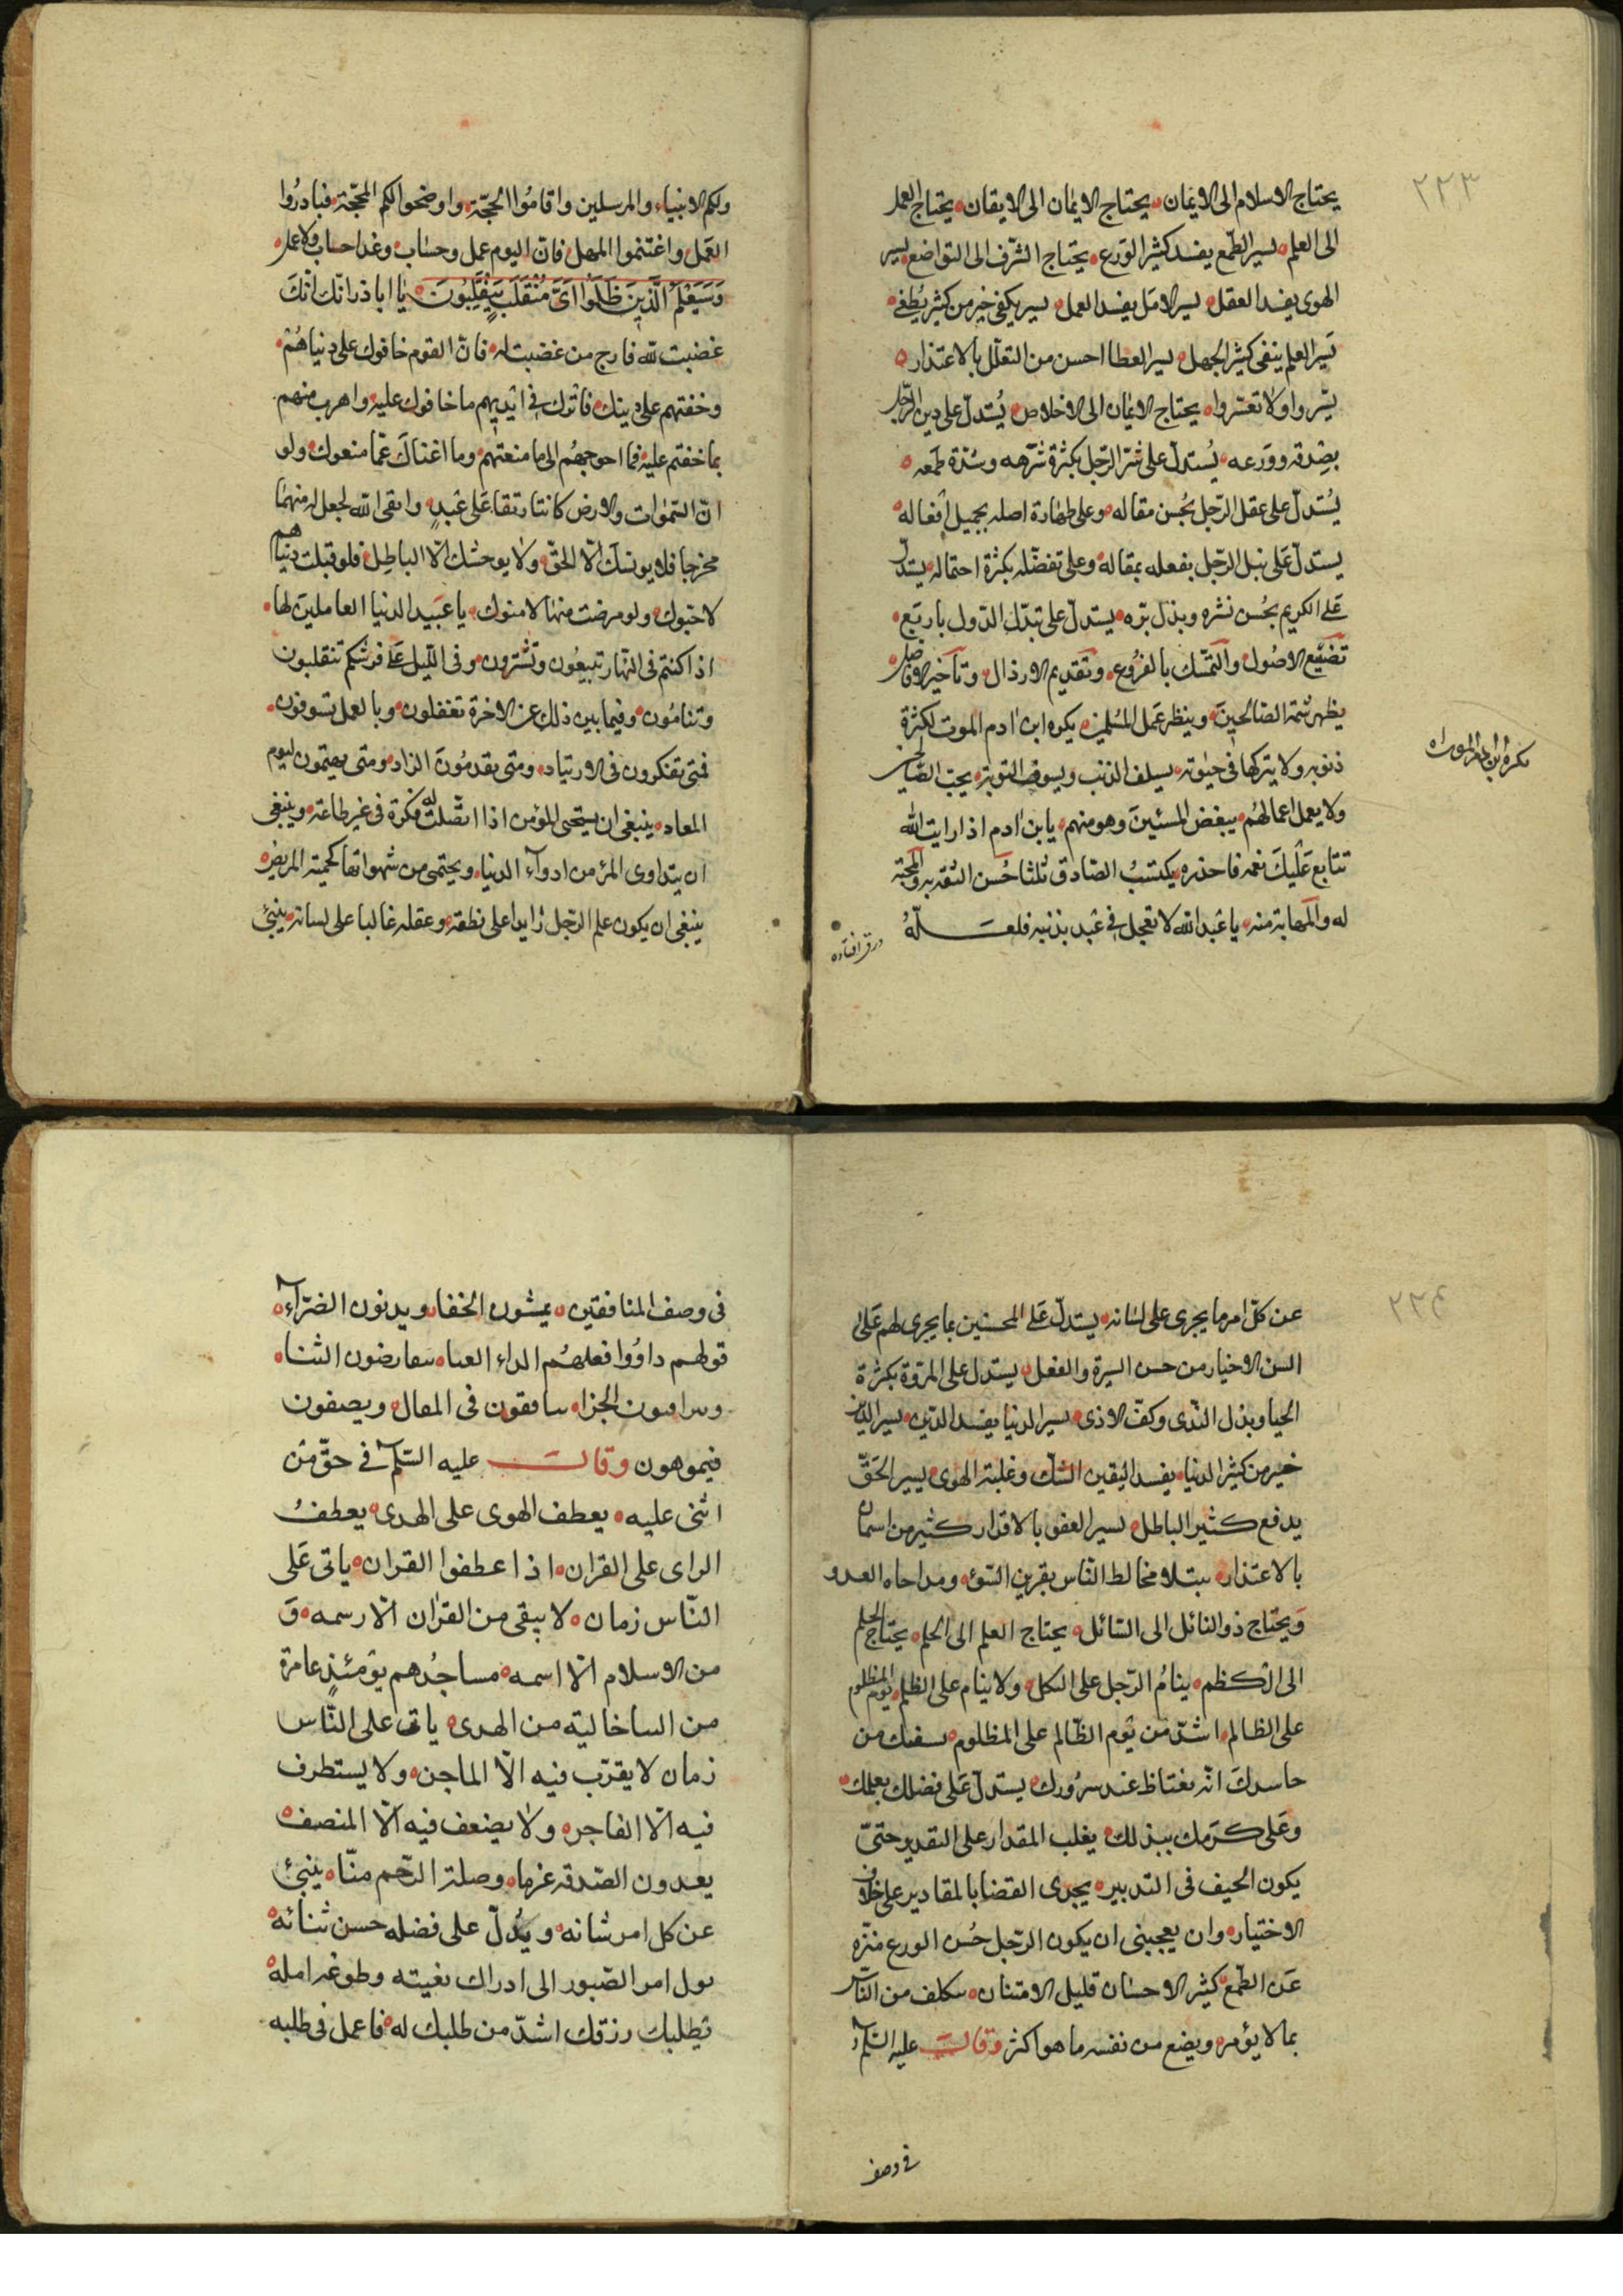 ٢٢٣
يحتاج الاسلام الى الايمان يحتاج الايمان الى الايقان يحتاج العلم
الى العلم يسير الطمع يفسد كثير الورع يحتاج الشرف الى التواضع يسير
الهوى يفسد العقل يسير الامل يفسد العمل يسير يكفى خير من كثير يطغى
يسير العلم ينفى كثير الجهل يسير العطا احسن من التعلل بالاعتذار
يسّروا ولا تعسّروا يحتاج الايمان الى الاخلاص يُستدلّ على دين الرّجل
بصدقه وورعه يُستدلّ على شرّ الرّجل بكثرة شرهه وشدّة طمعه
يُستدلّ على عقل الرّجل بحُسن مقاله وعلى طهارة اصله بجميل افعاله
يستدلّ على نبل الرّجل بفعله بمقاله وعلى تفضّله بكثرة احتماله يستدلّ
على الكريم بحُسن نشره وبذل برّه يستدلّ على تبدّل الدّول باربع
تضييع الاصُول والتمّسك بالفرُوع وتقديم الارذال وتاخير الافاضل
يظهر شمة الصالحين وينظر عمل المُسلمين يكره ابن ادم الموت لكثرة
ذنوبه ولا يتركها فى حيوته يسلف الذنب ويسوف التوبة يحبّ الصّالحين
ولا يعمل اعمالهُم يبغض المسئين وهو منهم يابن ادم اذا رايت الله
تتابع عليك نعمه فاحذره يكتسبُ الصّادق ثلثا حُسن الثقه به والمحبّة
له والمهابة منه يا عبد الله لا تعجل فى عبد بذنبه فلعلّهُ
ورق افتاده
ولكم الانبياء والمرسلين واقامُوا الحجّة واوضحوا لكم المحجّة فبادرُوا
العمل واغتنموا المهل فانّ اليوم عمل وحساب وغدا حساب ولا عمل
وَسَيَعْلَمُ الَّذِينَ ظَلَمُوا اَىَّ مُنْقَلَبٍ يَنْقَلِبُونَ يا ابا ذر انّك انّكَ
غضبت للّه فارج من غضبت له فانّ القوم خافوك على دنياهُمْ
وخفتهم على دينك فاترك فى ايديهم ما خافوك عليه واهرب منهم
بما خفتم عليه فما احوجهُم الى ما منعتهم وما اغناكَ عمّا منعوك ولو
انّ السّموات والارض كانتا رتقا على عبدٍ واتقى الله لجعل له منهما
مخرجا فلا يونسك الّا الحق ولا يوحشك الّا الباطل فلو قبلت دنياهم
لاحبّوك ولو مرضت منها لامنوك يا عبيد الدنيا العاملين لها
اذا كنتم فى النّهار تبيعُون وتشترون وفى الليل على فرشكم تنقلبون
وتنامُون وفيما بين ذلك عن الاخرة تغفلون وبالعمل تسوفون
فمتى تفكرون فى الارتياد ومتى يقدمُون الزاد ومتى يهتمون ليوم
المعاد ينبغى ان يستحى المؤمن اذا اتّصلت له فكرة فى غير طاعة وينبغى
ان يتداوى المؤمن ادواء الدنيا ويحتمى من شهواتها كحمية المريض
ينبغى ان يكون علم الرّجل زايدا على نطقه وعقله غالبا على لسانه ينبئ
٢٢٤
عن كلّ امر ما يجرى على لسانه يستدلّ على المحسنين بما يجرى لهم على
السن الاخيار من حسن السيرة والفعل يستدل على المروّة بكثرة
الحيا وبذل النّدى وكفّ الاذى يسير الدنيا يفسد الدّين يسير الدّين
خير من كثير الدنيا يفسد اليقين الشك وغلبة الهوى يسير الحَقّ
يدفع كثير الباطل يسير العفو بالاقدار كثير من
بالاعتذار يبتلا مخالط النّاس بقرين السّوء ومداحاه العدو
ويحتاج ذو النائل الى السّائل يحتاج العلم الى الحلم يحتاج الحلم
الى الكظم ينامُ الرّجل على الثكل ولا ينام على الظلم يوم المظلوم
على الظالم اشدّ من يوم الظّالم على المظلوم يسفك من
حاسدكَ انّه يغتاظ عند سرُورك يستدلّ على فضلك بعملك
وعلى كرمك ببذلك يغلب المقدار على التقدير حتىّ
يكون الحيف فى التدبير يجرى القضا بالمقادير على خلاف
الاختيار وان يعجبنى ان يكون الرّجل حُسن الورع متنزّه
عن الطّمع كثير الاحسان قليل الامتنان يكلف من النّاس
بما لا يؤمر ويضع من نفسه ما هو اكثر وقالَ عليه السّلم
فى وصف
فى وصف المنافقين يمشون الخفا ويدبون الضرّاء
قولهم داوُوا فعلهُم الداء العيا يتقارضون الثنا
ويتراقبون الجزا ينافقون فى المقال ويصفون
فيموهون وقالَ عليه السّلم فى حقّ من
اثنى عليه يعطف الهوى على الهدى يعطفُ
الراى على القران اذا عطفوا القران ياتى عَلى
النّاس زمان لا يبقى من القرٰان الّا رسمه وَ
من الاسلام الّا اسمه مساجدُهم يومئذٍ عامرة
من البنا خالية من الهدى ياتى على النّاس
زمان لا يقرّب فيه الّا الماجن ولا يستطرف
فيه الّا الفاجر ولا يضعف فيه الّا المنصف
يعدون الصّدقه غرما وصلة الرّحم منّا ينبئ
عن كل امر شانه ويدُلّ على فضله حسن ثنائه
يول امر الصّبور الى ادراك بغيته وبلوغه امله
يطلبك رزقك اشدّ من طلبك له فاعمل فى طلبه